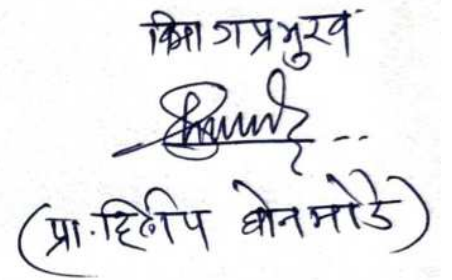 विभागप्रमुख
(प्रा. दिलीप घोनमोडे)